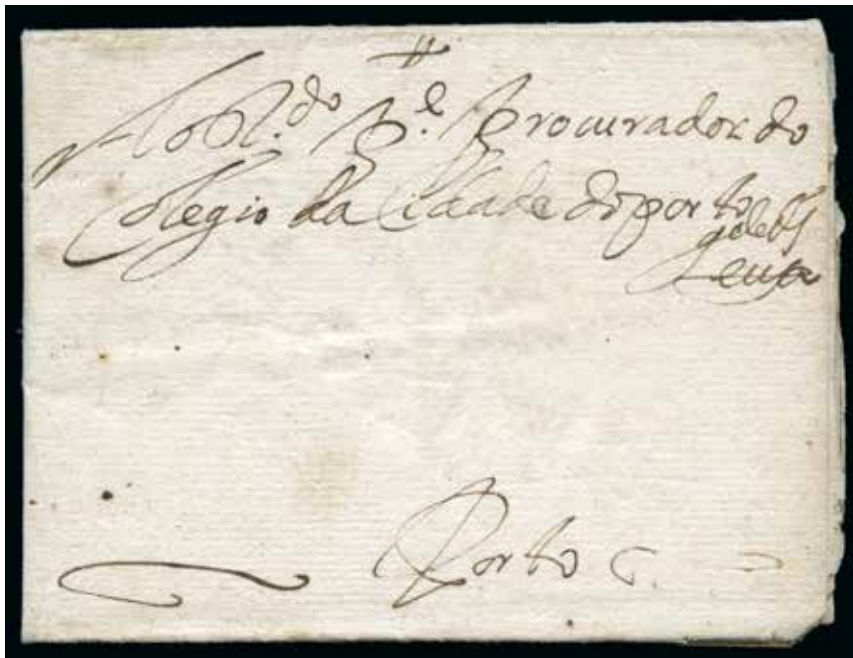 Ao R.do P.e Procurador do
Colegio da Cidade do porto
Porto